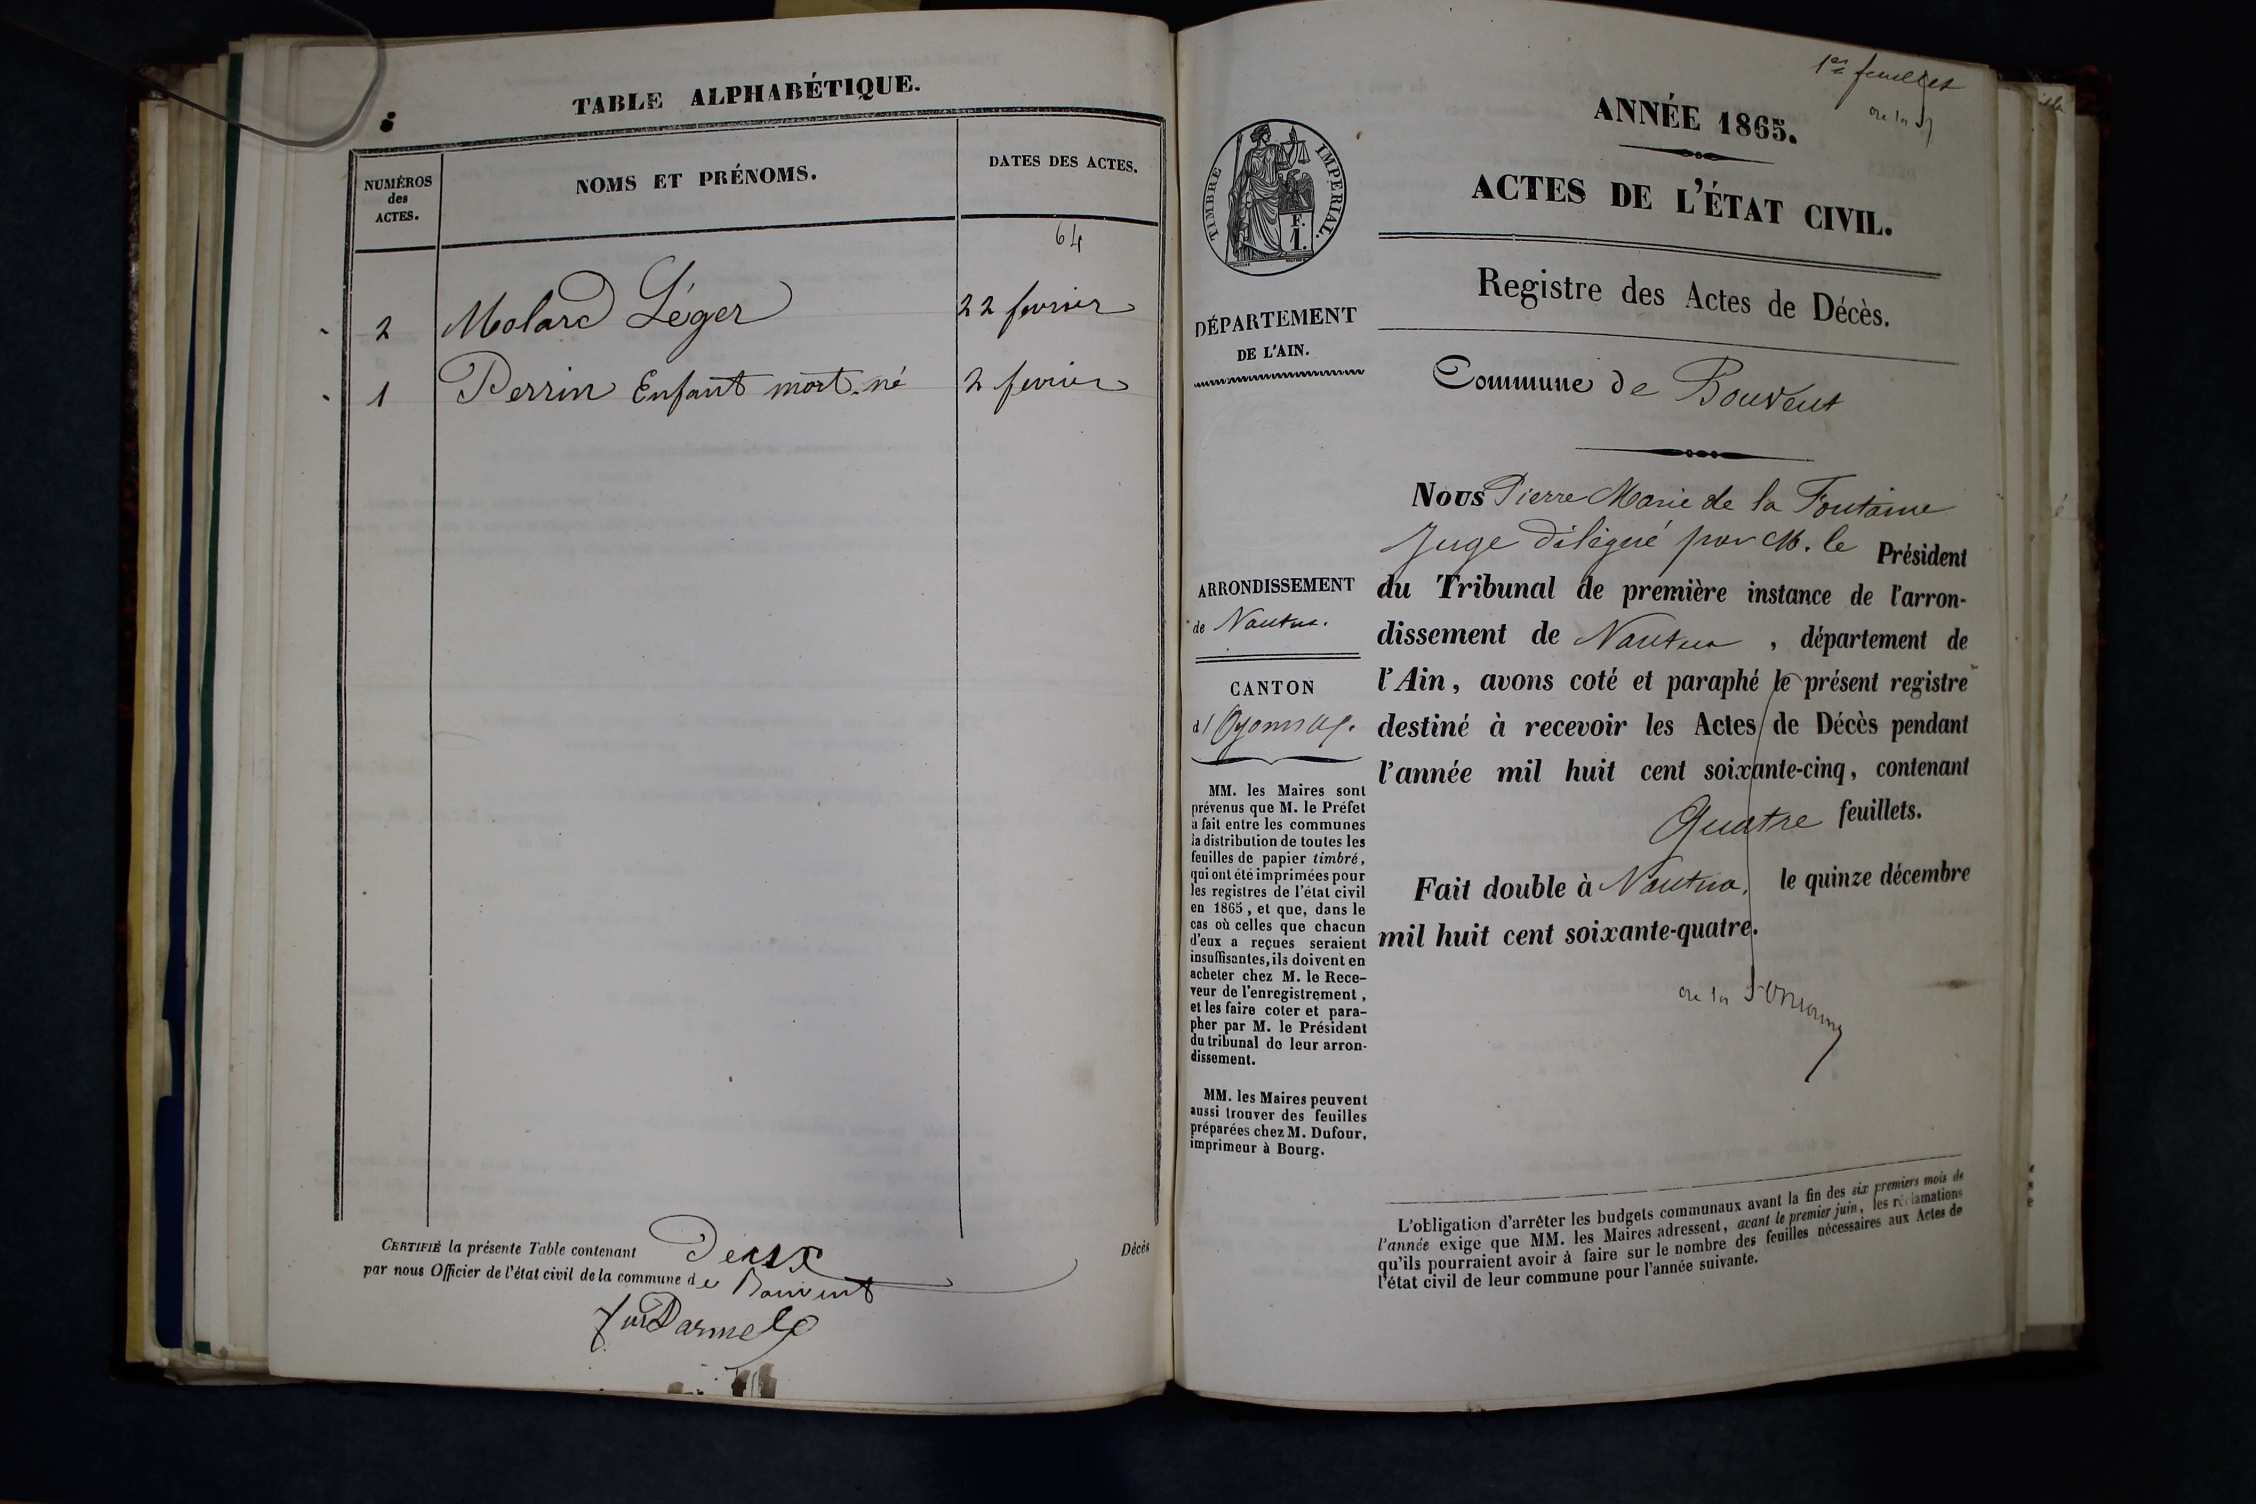 TABLE ALPHABÉTIQUE.
NUMÉROS
des
ACTES.
NOMS ET PRÉNOMS.
DATES DES ACTES.
64
2 Molard Léger 22 fevrier
1 Perrin Enfant mort-né 2 fevrier
CERTIFIÉ la présente Table contenant Deux Décès
par nous Officier de l'état civil de la commune de Bouvent
1er feuillet
de la
ANNÉE 1865.
ACTES DE L'ÉTAT CIVIL.
TIMBRE IMPERIAL.
F.
1.
Registre des Actes de Décès.
DÉPARTEMENT
DE L'AIN.
Commune de Bouvent
Nous Pierre Marie de la Fontaine
Juge délégué par M. le Président
du Tribunal de première instance de l'arron-
dissement de Nantua, département de
l'Ain, avons coté et paraphé le présent registre
destiné à recevoir les Actes de Décès pendant
l'année mil huit cent soixante-cinq, contenant
Quatre feuillets.
Fait double à Nantua, le quinze décembre
mil huit cent soixante-quatre.
de la
ARRONDISSEMENT
de Nantua.
CANTON
d'Oyonnax.
MM. les Maires sont
prévenus que M. le Préfet
a fait entre les communes
la distribution de toutes les
feuilles de papier timbré,
qui ont été imprimées pour
les registres de l'état civil
en 1865, et que, dans le
cas où celles que chacun
d'eux a reçues seraient
insuffisantes, ils doivent en
acheter chez M. le Rece-
veur de l'enregistrement,
et les faire coter et para-
pher par M. le Président
du tribunal de leur arron-
dissement.
MM. les Maires peuvent
aussi trouver des feuilles
préparées chez M. Dufour,
imprimeur à Bourg.
L'obligation d'arrêter les budgets communaux avant la fin des six premiers mois de
l'année exige que MM. les Maires adressent, avant le premier juin, les réclamations
qu'ils pourraient avoir à faire sur le nombre des feuilles nécessaires aux Actes de
l'état civil de leur commune pour l'année suivante.